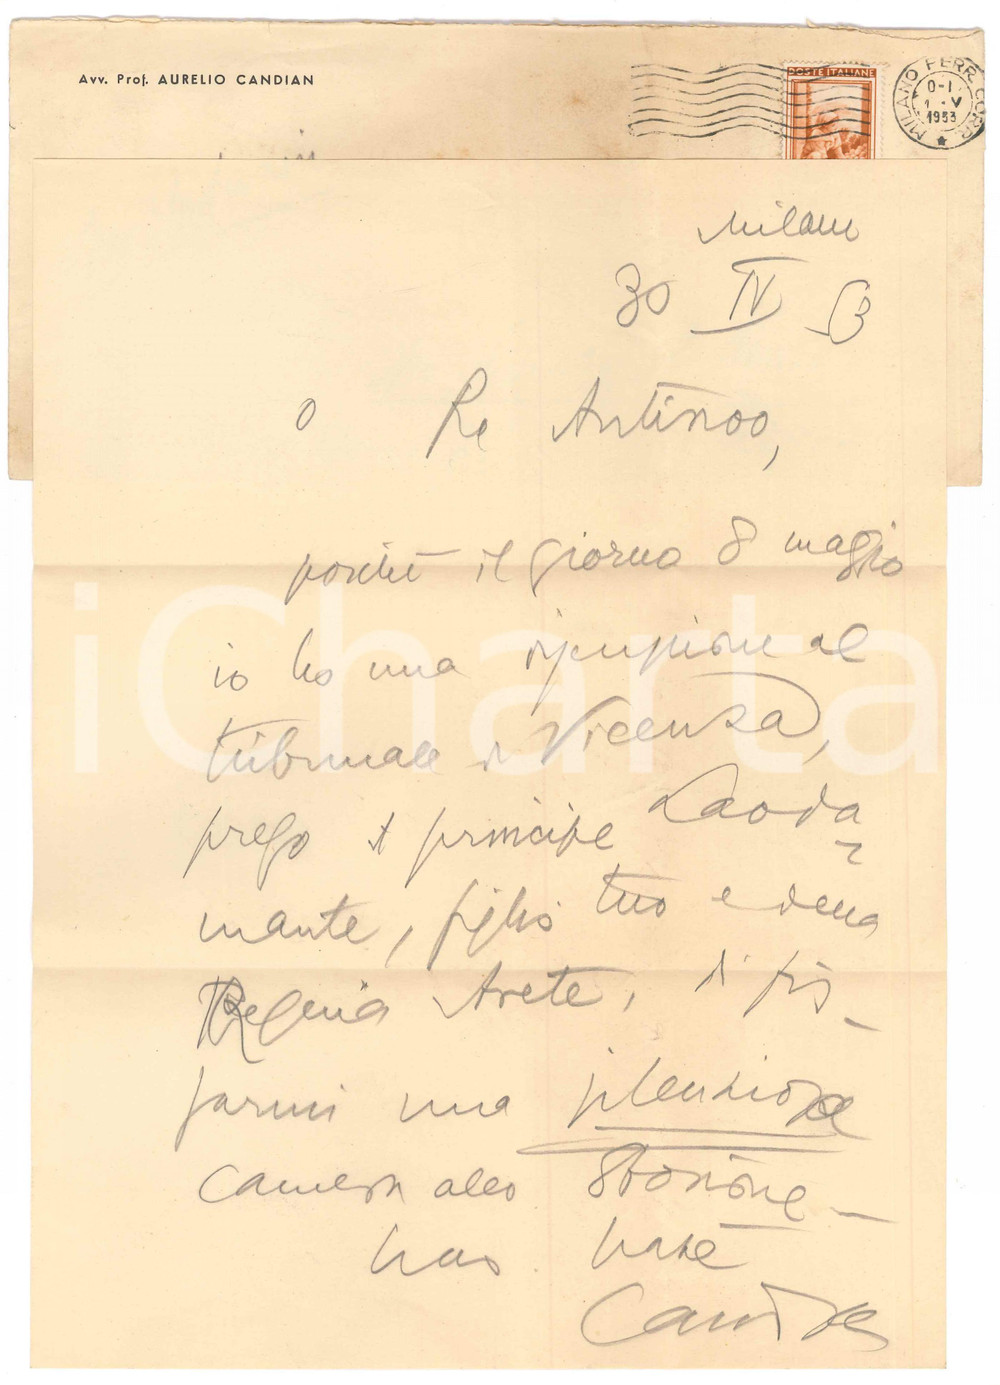 Avv. Prof. AURELIO CANDIAN
POSTE ITALIANE
MILANO FERR. CORR.
0-1
1·V
1953
Milano
30 IV 53
o Re Antinoo,
poiché il giorno 8 maggio
io ho una discussione al
tribunale di Vicenza,
prego il principe Laoda-
mante, figlio tuo e della
Regina Arete, di fis-
sarmi una silenziosa
camera allo Storione -
Candian
iCharta